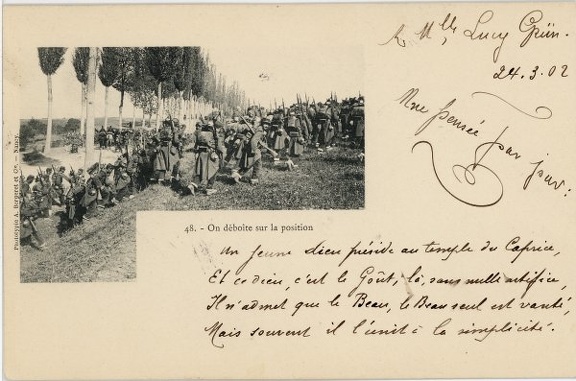 A Mlle, Lucy Grün.
24.3.02
Une pensée par jour:
48. - On déboite sur la position
Phototypie A. Bergeret et Cie. — Nancy
Un jeune dieu préside au temple du Caprice,
Et ce dieu, c'est le Goût; là, sans nulle artifice,
Il n'admet que le Beau, le Beau seul est vanté,
Mais souvent il l'unit à la simplicité.